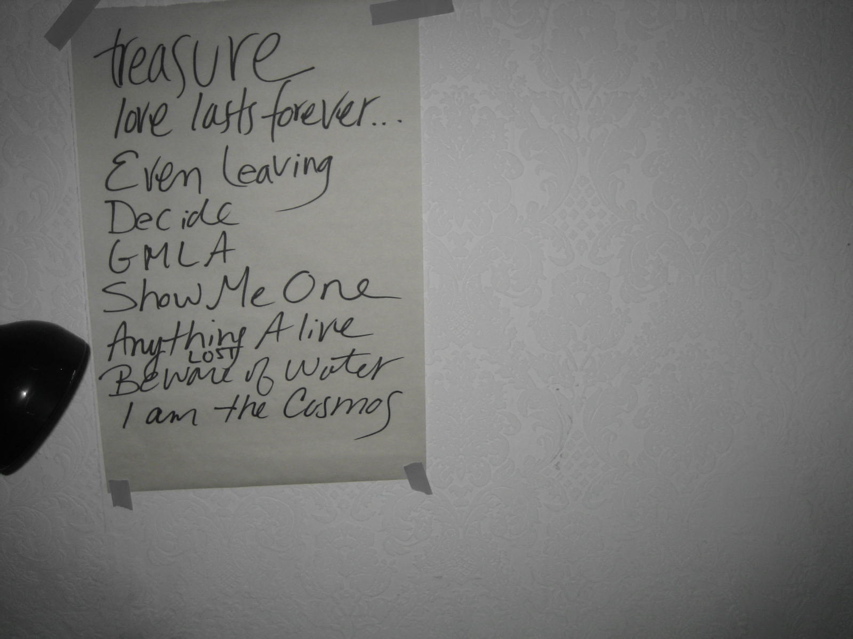 treasure
love lasts forever...
Even Leaving
Decide
GMLA
Show Me One
Anything Alive
LOST
Beware of Water
I am the Cosmos